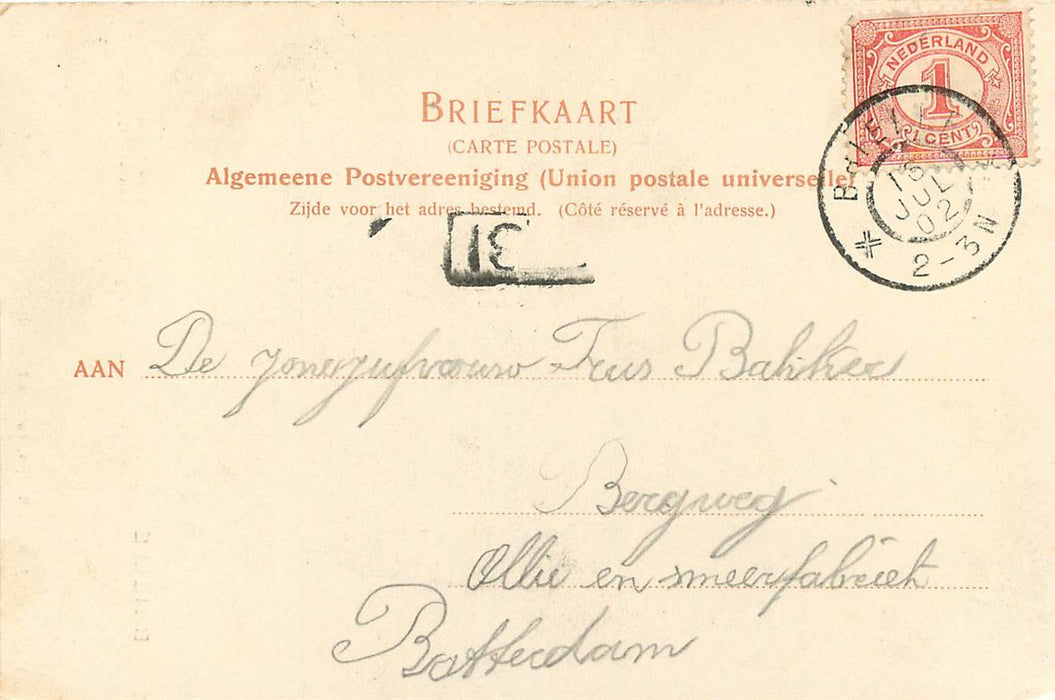 NEDERLAND
1
1 CENT
BRIEFKAART
(CARTE POSTALE)
Algemeene Postvereeniging (Union postale universelle)
Zijde voor het adres bestemd. (Côté réservé à l'adresse.)
JUL
02
2-3N
31
AAN De jonegjufvrouw Trus Bakker
Bergweg
Ollie en smeerfabriek
Rotterdam